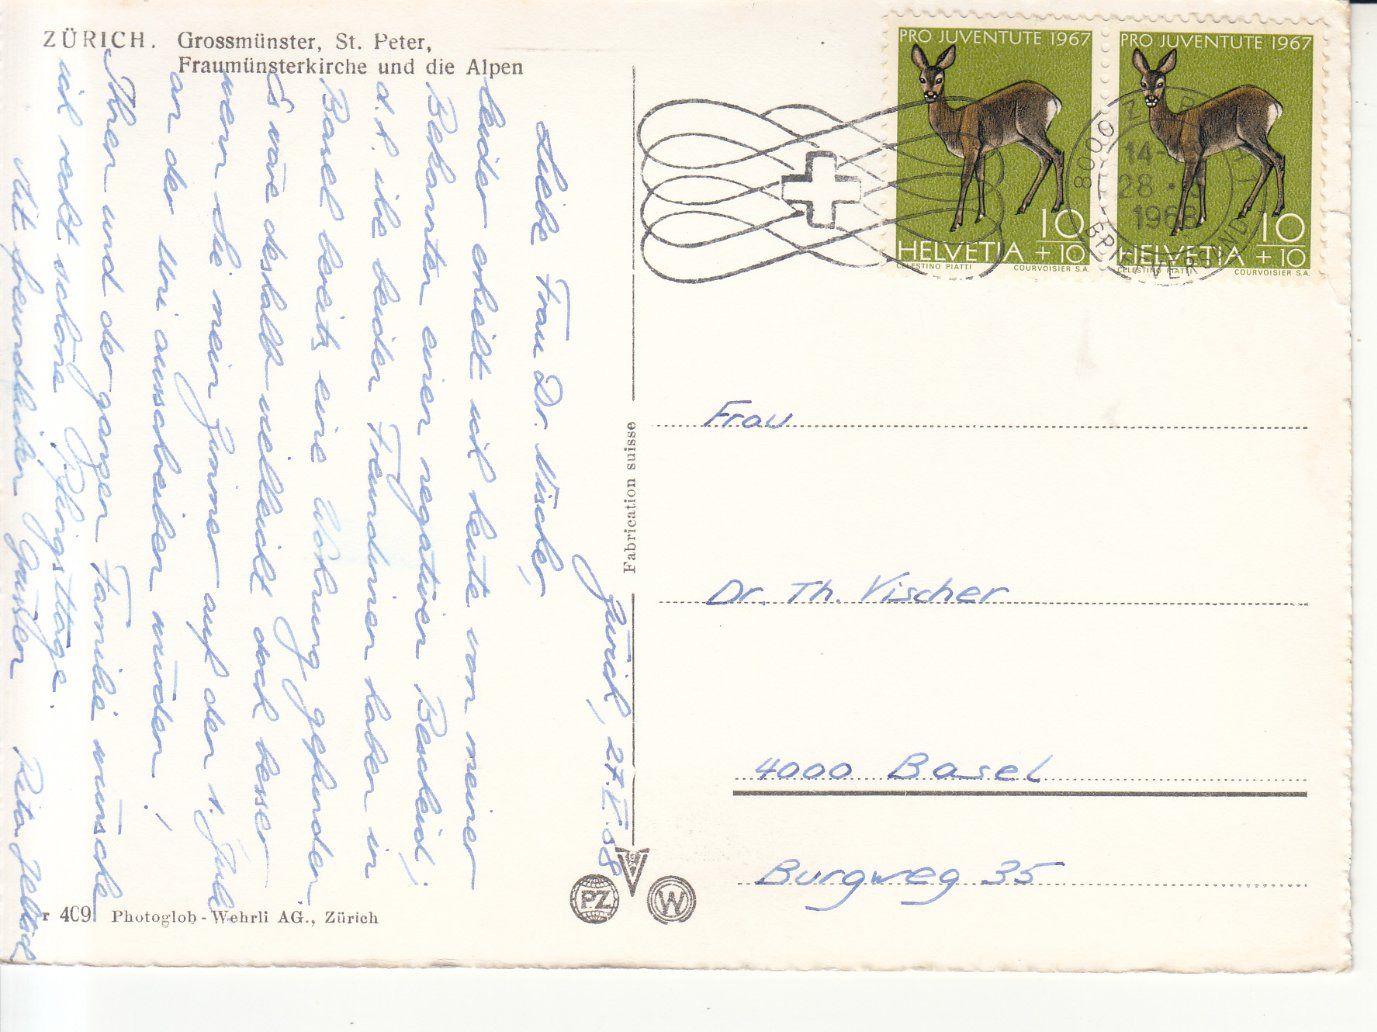 ZÜRICH. Grossmünster, St. Peter,
Fraumünsterkirche und die Alpen
Zürich, 27.V.68
Liebe Frau Dr. Vischer,
leider erhielt ich heute von meiner
Bekannten einen negativen Bescheid,
d.h. ihre beiden Freundinnen haben in
Basel bereits eine Wohnung gefunden.
Es wäre deshalb vielleicht doch besser
wenn Sie mein Zimmer auf den 1. Juli
an der Uni ausschreiben würden!
Ihnen und der ganzen Familie wünsche
ich recht schöne Pfingsttage.
Mit freundlichen Grüssen
Rita
r 409 Photoglob-Wehrli AG., Zürich
Fabrication suisse
PZ
W
PRO JUVENTUTE 1967
10
+10
HELVETIA
CELESTINO PIATTI COURVOISIER S.A.
PRO JUVENTUTE 1967
10
+10
HELVETIA
CELESTINO PIATTI COURVOISIER S.A.
8000
14-
28
1968
BRIEFVERSAND
Frau
Dr. Th. Vischer
4000 Basel
Burgweg 35